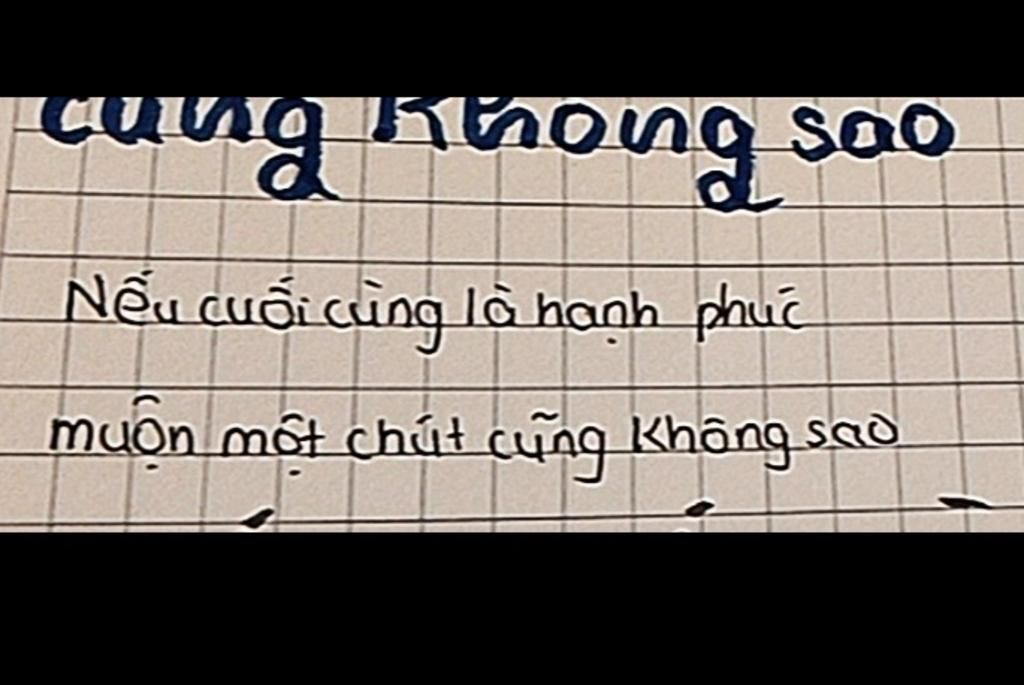 cũng không sao
Nếu cuối cùng là hạnh phúc
muộn một chút cũng không sao